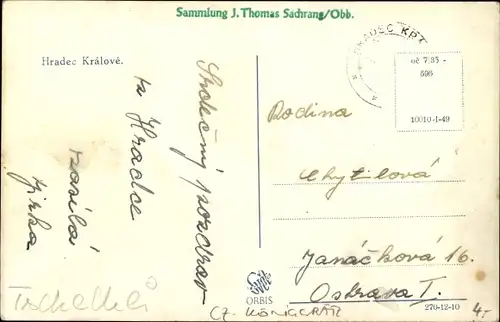 Sammlung J. Thomas Sachrang/Obb.
HRADEC KRÁ
Hradec Králové.
oč 7/35 -
606
10010-1-49
Srdečný pozdrav
z Hradce
zasílá
Jirka
Rodina
Chytilová
Janáčková 16.
Ostrava I.
ORBIS
270-12-10
CZ. KÖNIGGRÄTZ
4,-